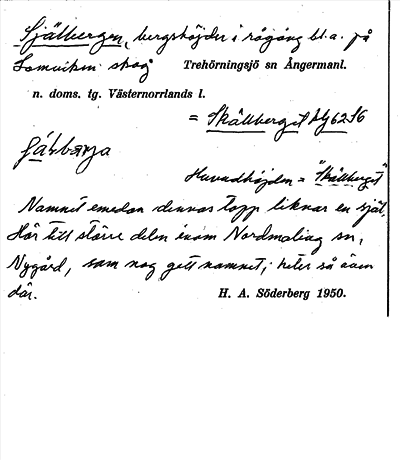 Själbergen, bergshöjder i rågång bl.a. på
Lomviken skog Trehörningsjö sn Ångermanl.
n. doms. tg. Västernorrlands l.
= Skälberget
Huvudhöjden = "Skälberget"
Namnet emedan dennas topp liknar en själ.
Hör till större delen inom Nordmaling sn,
Nygård, som nog gett namnet, heter så även
där. H. A. Söderberg 1950.